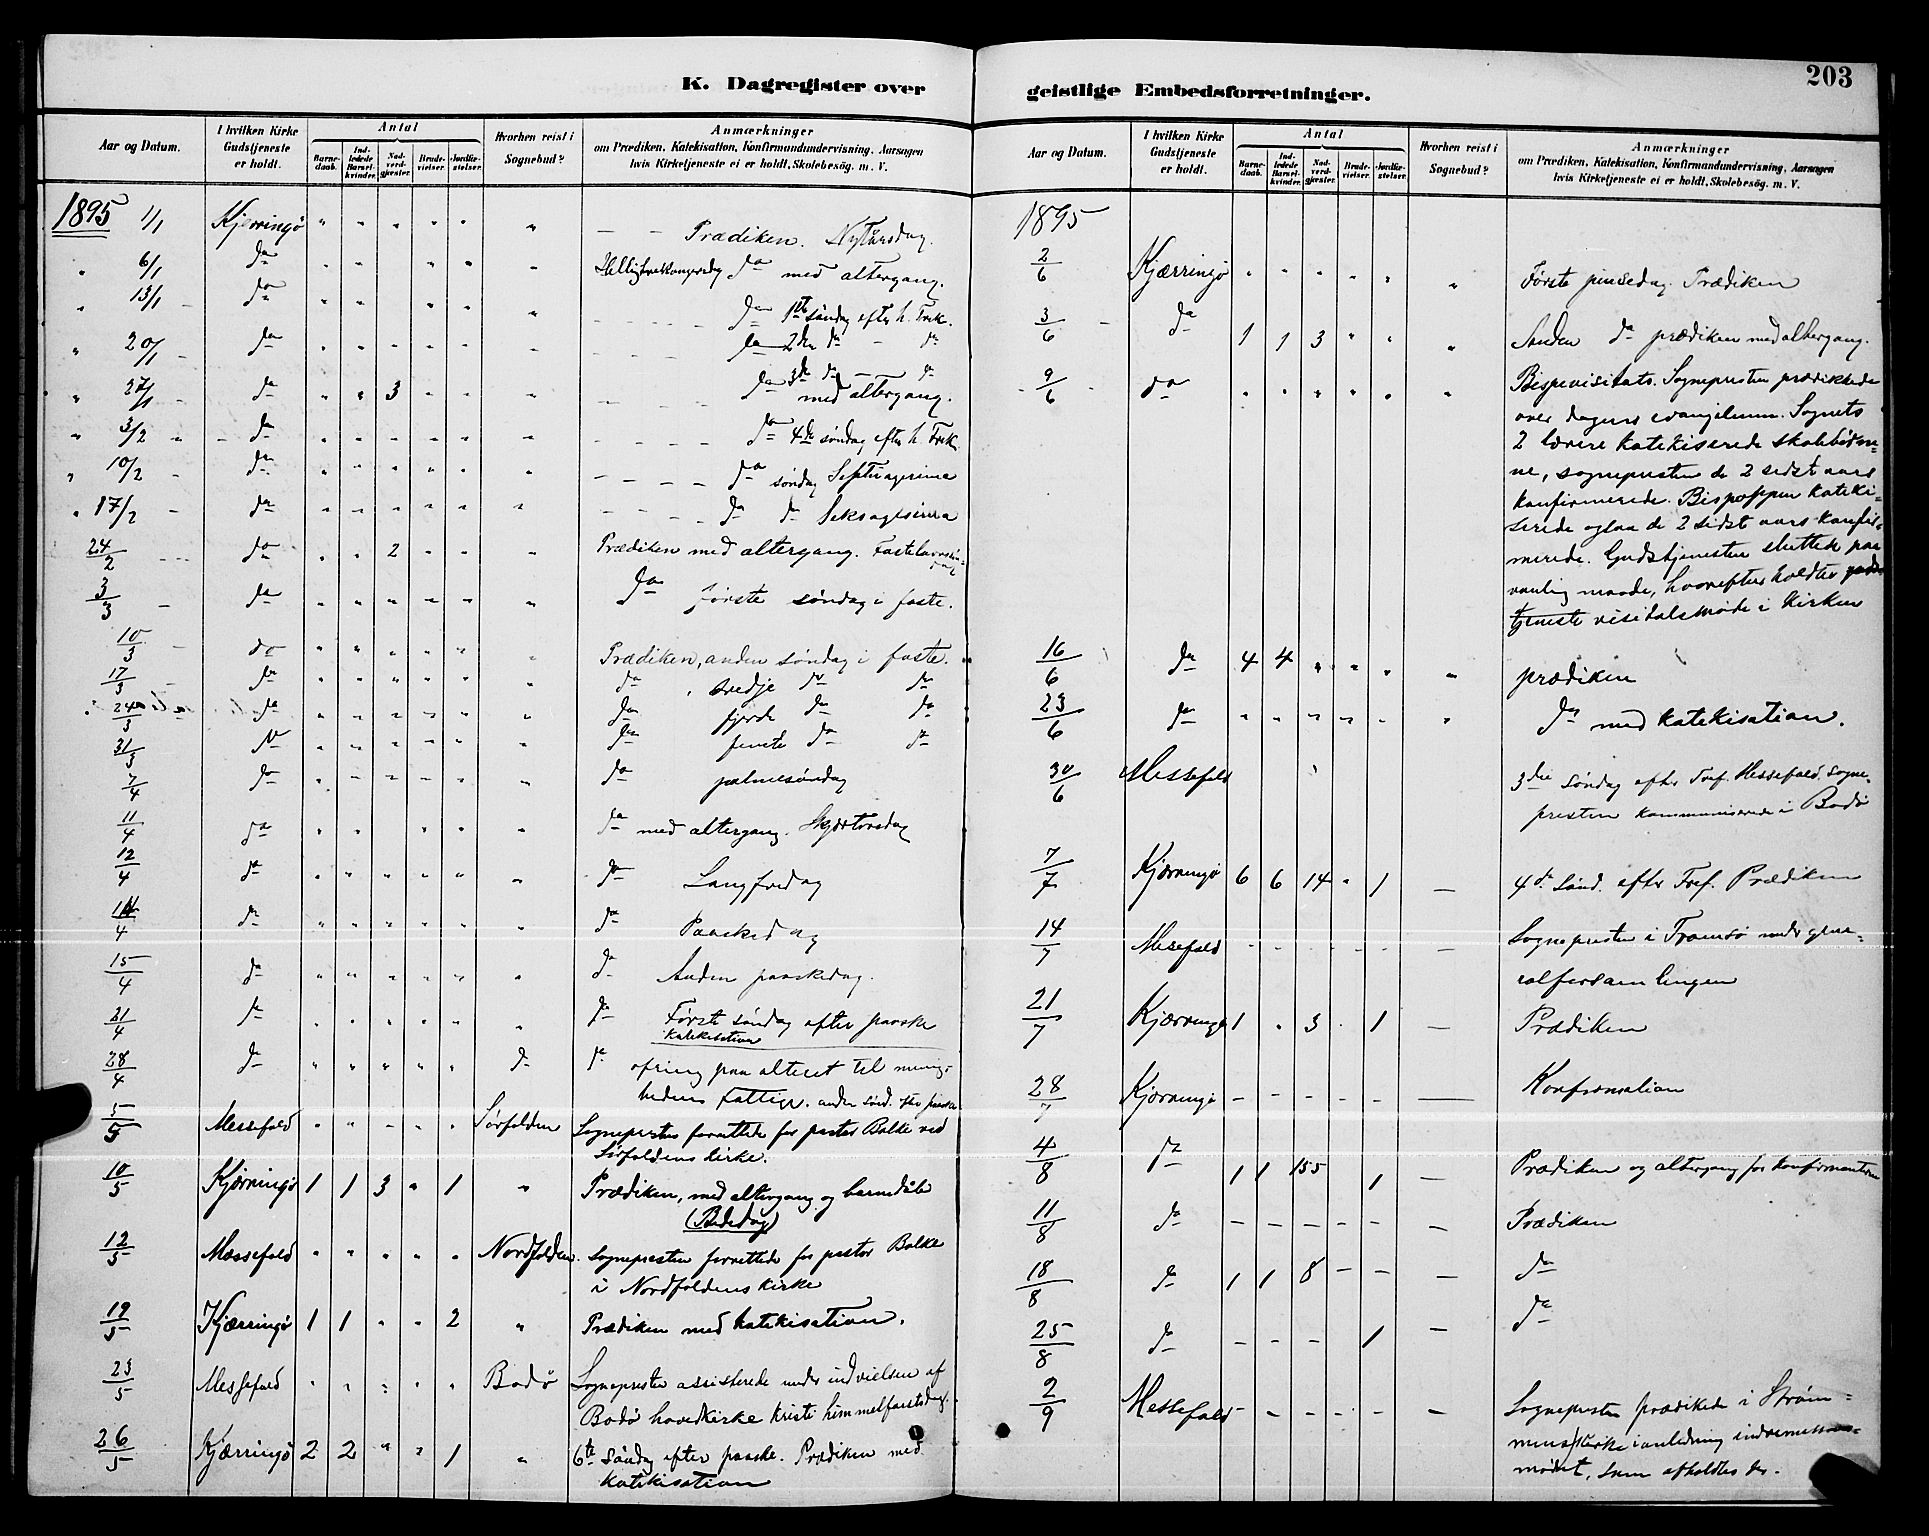 203
K. Dagregister over geistlige Embedsforretninger.
Aar og Datum.
I hvilken Kirke Gudstjeneste er holdt.
Antal
Barnedaab.
Indledede Barselkvinder.
Nadverdgjæster.
Brudevielser.
Jordfæstelser.
Hvorhen reist i Sognebud?
Anmærkninger
om Prædiken, Katekisation, Konfirmandundervisning, Aarsagen
hvis Kirketjeneste ei er holdt, Skolebesøg. m. V.
1895 1/1 Kjerringø " " " " " " — — Prædiken. Nytårsdag.
" 6/1 do " " " " " Helligtrekongersdag do med altergang.
" 13/1 do " " " " " do 1ste søndag efter h. Trek.
" 20/1 do " " " " " " do 2den do — do
" 27/1 do " " 3 " " " do 3de do — do
med altergang.
" 3/2 do " " " " " " do 4de søndag efter h. Trek.
" 10/2 do " " " " " " do søndag Septuagesima
" 17/2 do " " " " " " do do Seksagesima
24/2 do " " 2 " " " Prædiken med altergang. Fastelavnsøndag
3/3 do " " " " " " do første søndag i faste.
10/3 do " " " " " " Prædiken, anden søndag i faste.
17/3 do " " " " " " do, tredje do do
24/3 do " " " " " " do fjerde do do
31/3 do " " " " " " do femte do do
7/4 do " " " " " " do palmesøndag
11/4 do " " " " " do med altergang. Skjærtorsdag
12/4 do " " " " " " do Langfredag
14/4 do " " " " " " do Paaskedag
15/4 do " " " " " " do Anden paaskedag.
21/4 do " " " " " " do Første søndag efter paaske
katekisation
28/4 do " " " " " do do ofring paa alteret til menig-
hedens fattige. anden sønd. efter paaske
5/5 Messefald " " " " " Sørfolden Sognepresten forrettede for pastor Balke ved
Sørfoldens kirke.
10/5 Kjærringø 1 1 3 " 1 " Prædiken, med altergang og barnedåb
(Bededag)
12/5 Messefald " " " " " Nordfolden. Sognepresten forrettede for pastor Balke
i Nordfoldens kirke
19/5 Kjærringø 1 1 " " 2 " Prædiken med katekisation.
23/5 Messefald " " " " " Bodø Sognepresten assisterede under indvielsen af
Bodø hovedkirke kristi himmelfartsdag.
26/5 Kjærringø 2 2 " " 1 " 6te søndag efter paaske. Prædiken med
katekisation
Aar og Datum.
I hvilken Kirke Gudstjeneste er holdt.
Antal
Barnedaab.
Indledede Barselkvinder.
Nadverdgjæster.
Brudevielser.
Jordfæstelser.
Hvorhen reist i Sognebud?
Anmærkninger
om Prædiken, Katekisation, Konfirmandundervisning, Aarsagen
hvis Kirketjeneste ei er holdt, Skolebesøg. m. V.
1895
2/6 Kjærringø " " " " " " Første pinsedag. Prædiken
3/6 do 1 1 3 " " " Anden do prædiken med altergang.
9/6 do " " " " " " Bispevisitats. Sognepresten prædikede
over dagens evangelium. Sognets
2 lærere katekiserede skolebørne-
ne, sognepresten de 2 sidst aars
konfirmerede. Biskoppen kateki-
serede ogsaa de 2 sidst aars konfir-
merede. Gudstjenesten sluttede paa
vanlig maade, hvorefter holdtes
visitatsmøde i kirken
16/6 do 4 4 " " " " prædiken
23/6 do " " " " " " do med katekisation.
30/6 Messefald 3die søndag efter Tref. Messefald. Sogne-
presten kommuniserede i Bodø
7/7 Kjærringø 6 6 14 " 1 — 4de sønd. efter Tref. Prædiken
14/7 Messefald - - - - - — Sognepresten i Tromsø under gene-
ralforsamlingen
21/7 Kjærringø 1 " 3 " 1 — Prædiken
28/7 Kjærringø - - - - - — Konfirmation
4/8 do 1 1 155 1 — Prædiken og altergang for konfirmanterne
11/8 do - - - - - — Prædiken
18/8 do 1 1 8 - - — do
25/8 do - - - 1 — do
2/9 Messefald - - - - - — Sognepresten prædikede i Strøm-
mens kirke i anledning indremissions-
mødet, som afholdtes der.